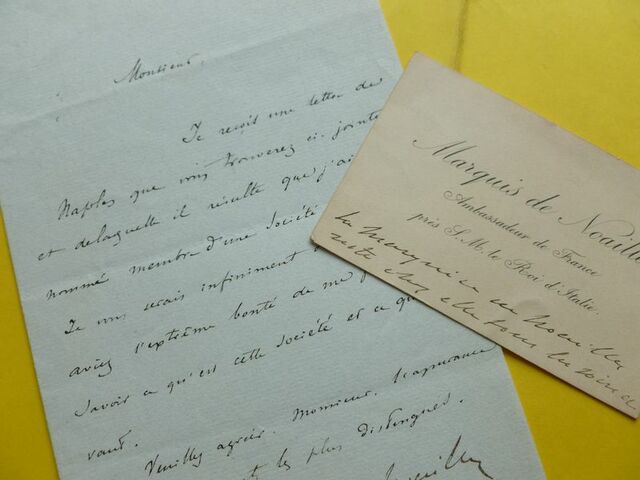 Monsieur,
Je reçois une lettre de
Naples que vous trouverez ci-jointe
et de laquelle il résulte que j'ai
nommé membre d'une Société
Je vous serais infiniment
aviez l'extrême bonté de me
savoir ce qu'est cette Société et ce qu
vaut.
Veuillez agréer, Monsieur, l'assurance
les plus distingués.
Marquis de Noaill
Ambassadeur de France
près S. M. le Roi d'Italie.
la marquise de Noailles
reste chez elle tous les